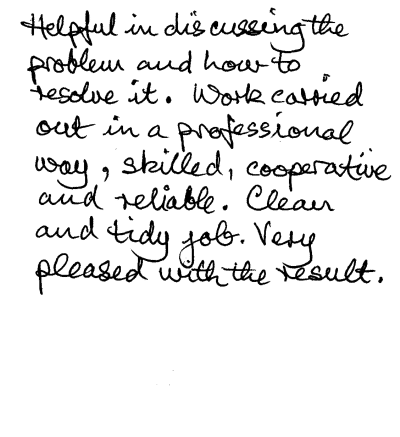 Helpful in discussing the
problem and how to
resolve it. Work carried
out in a professional
way, skilled, cooperative
and reliable. Clean
and tidy job. Very
pleased with the result.